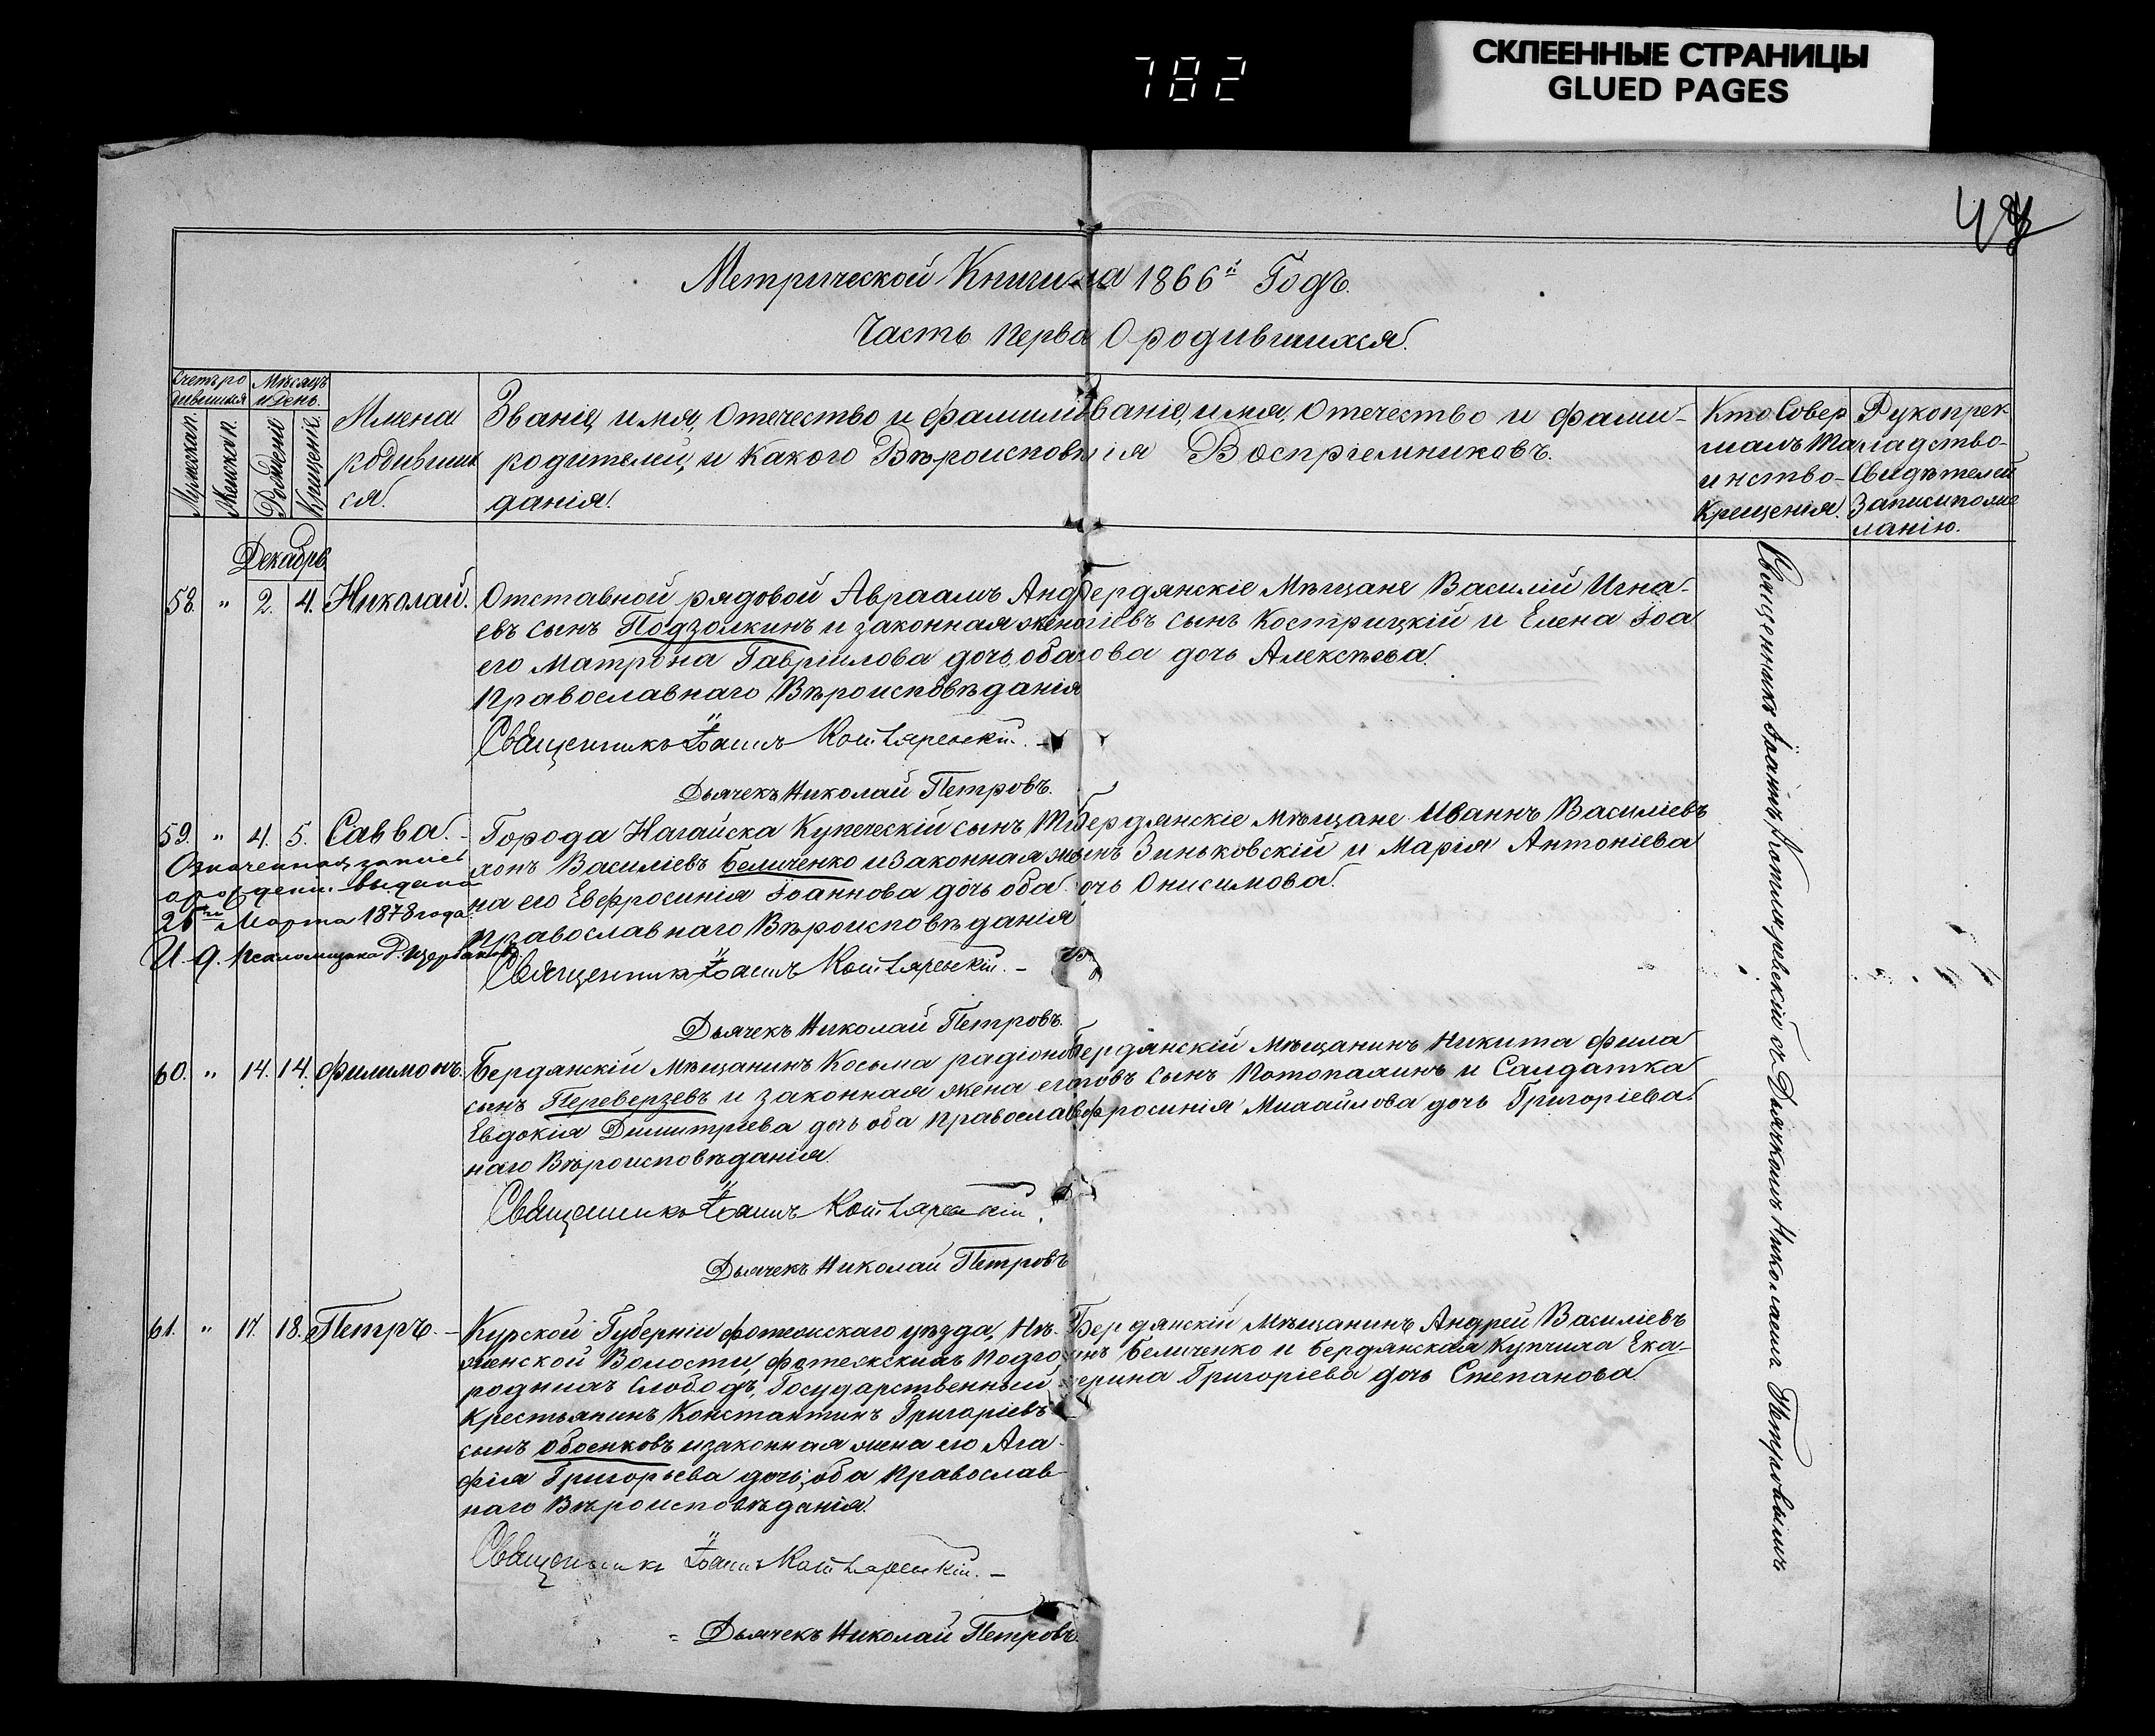 782
СКЛЕЕННЫЕ СТРАНИЦЫ
GLUED PAGES
Метрической Книги на 1866й Годъ.
Часть перва О родившихся.
Счетъ ро
дившихся
Мужеск п.
Женск п.
Мѣсяцъ
и день.
Рожденія
Крещеніе.
Имена
родивших
ся.
Званіе, имя, Отечество и фамилі
родителей, и Какого Вѣроисповѣ
данія.
ваніе, имя, Отечество и фами-
лія Воспріемниковъ.
Кто Совер
шалъ Та
инство-
Крещенія.
Рукоприк
ладство-
Свидѣтелей
Записи по же
ланію.
Декабрь.
58. " 2. 4. Николай.
Отставной рядовой Авраамъ Анд
евъ сынъ Подзолкинъ и законная жена
его Матрона Гавріилова дочь, оба
Православнаго Вѣроисповѣданія
Священникъ Іоаннъ Котляревскій. -
Дьячекъ Николай Петровъ.
Бердянскіе Мѣщане Василій Игна-
тіевъ сынъ Кострицкій и Елена Іоа
ова дочь Алексѣева.
59. " 4. 5. Савва. -
Означенная запись
о рожденіи выдана
Марта 1878 года
И. д. Псаломщика
Города Нагайска Купеческій сынъ
Василіевъ Беличенко и законная же
на его Евфросинія Іоаннова дочь оба
Православнаго Вѣроисповѣданія
Священникъ Іоаннъ Котляревскій. -
Дьячекъ Николай Петровъ.
Бердянскіе Мѣщане Иваннъ Василіевъ
сынъ Зиньковскій и Марія Антоніева
дочь Онисимова.
60. " 14. 14. Филимонъ.
Бердянскій Мѣщанинъ Косьма радіонов
сынъ Переверзевъ и законная жена его
Евдокія Димитріева дочь оба Православ
наго Вѣроисповѣданія.
Священникъ Іоаннъ Котляревскій.
Дьячекъ Николай Петровъ
Бердянскій Мѣщанинъ Никита Фила
товъ сынъ Потопалинъ и Салдатка
Ефросинія Михайлова дочь Григоріева.
61. " 17. 18. Петръ. -
Курской Губерніи Фотежскаго уѣзда,
Волости, Фотежскихъ Подго
родныхъ Слободъ, Государственный
Крестьянинъ Константинъ Григоріевъ
сынъ Обоенковъ и законная жена его Ага
фія Григорьева дочь, оба Православ-
наго Вѣроисповѣданія.
Священникъ Іоаннъ Котляревскій. -
= Дьячекъ Николай Петровъ.
Бердянскій Мѣщанинъ Андрей Василіевъ
сынъ Беличенко и бердянская Купчиха Ека-
терина Григоріева дочь Степанова.
Священникъ Іоаннъ Котляревскій съ Дьячкомъ Николаемъ Петровымъ